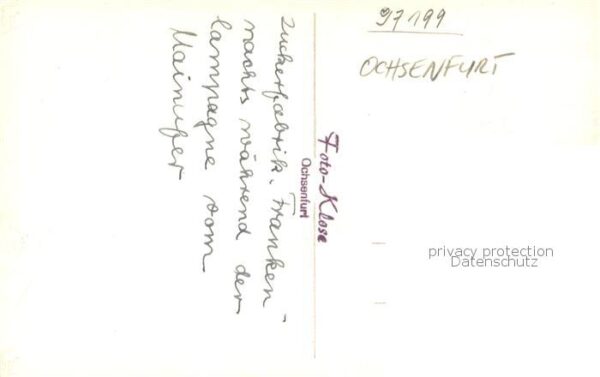 97199
OCHSENFURT
Zuckerfabrik "Franken"
nachts während der
Campagne vom
Mainufer
Foto-Klose
Ochsenfurt
privacy protection
Datenschutz